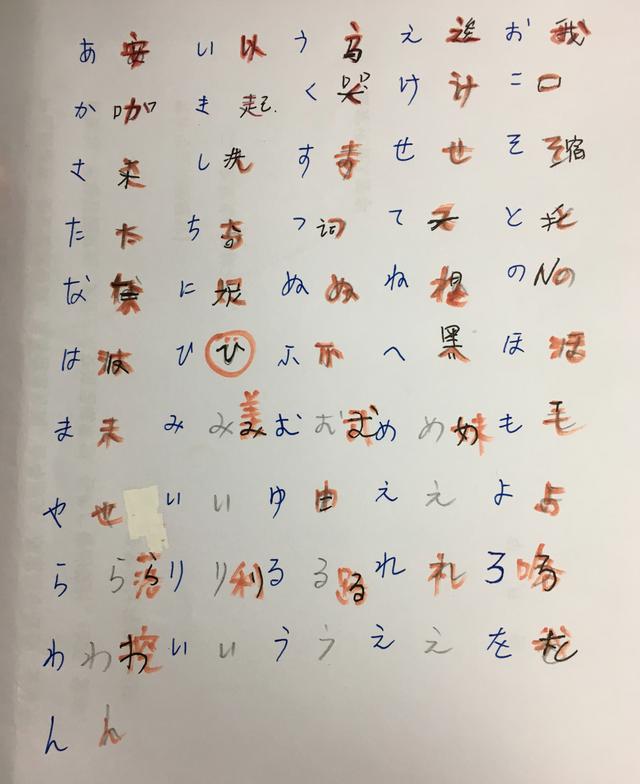 あ 安 い 以 う え お 我
か 咖 き 起 く 哭 け 计 こ 口
さ し 洗 す せ せ そ 缩
た た ち 奇 つ 词 て 天 と 托
な に ぬ ぬ ね の Nの
は 波 ひ ひ ふ へ 黑 ほ ほ
ま 未 み み 美 む む め め 妹 も 毛
や 世 い い ゆ 由 え え よ よ
ら ら 落 り り 利 る る 路 れ 礼 ろ
わ わ 挖 い い う う え え を
ん ん